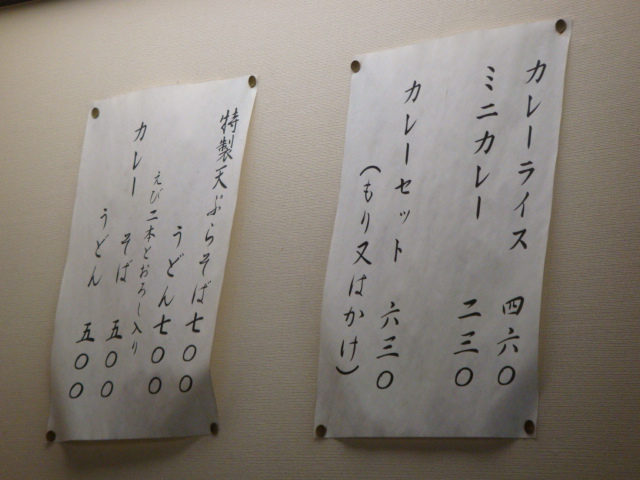 カレーライス 四六〇
ミニカレー 二三〇
カレーセット 六三〇
(もり又はかけ)
特製天ぷらそば七〇〇
うどん七〇〇
えび二本とおろし入り
カレーそば 五〇〇
うどん 五〇〇